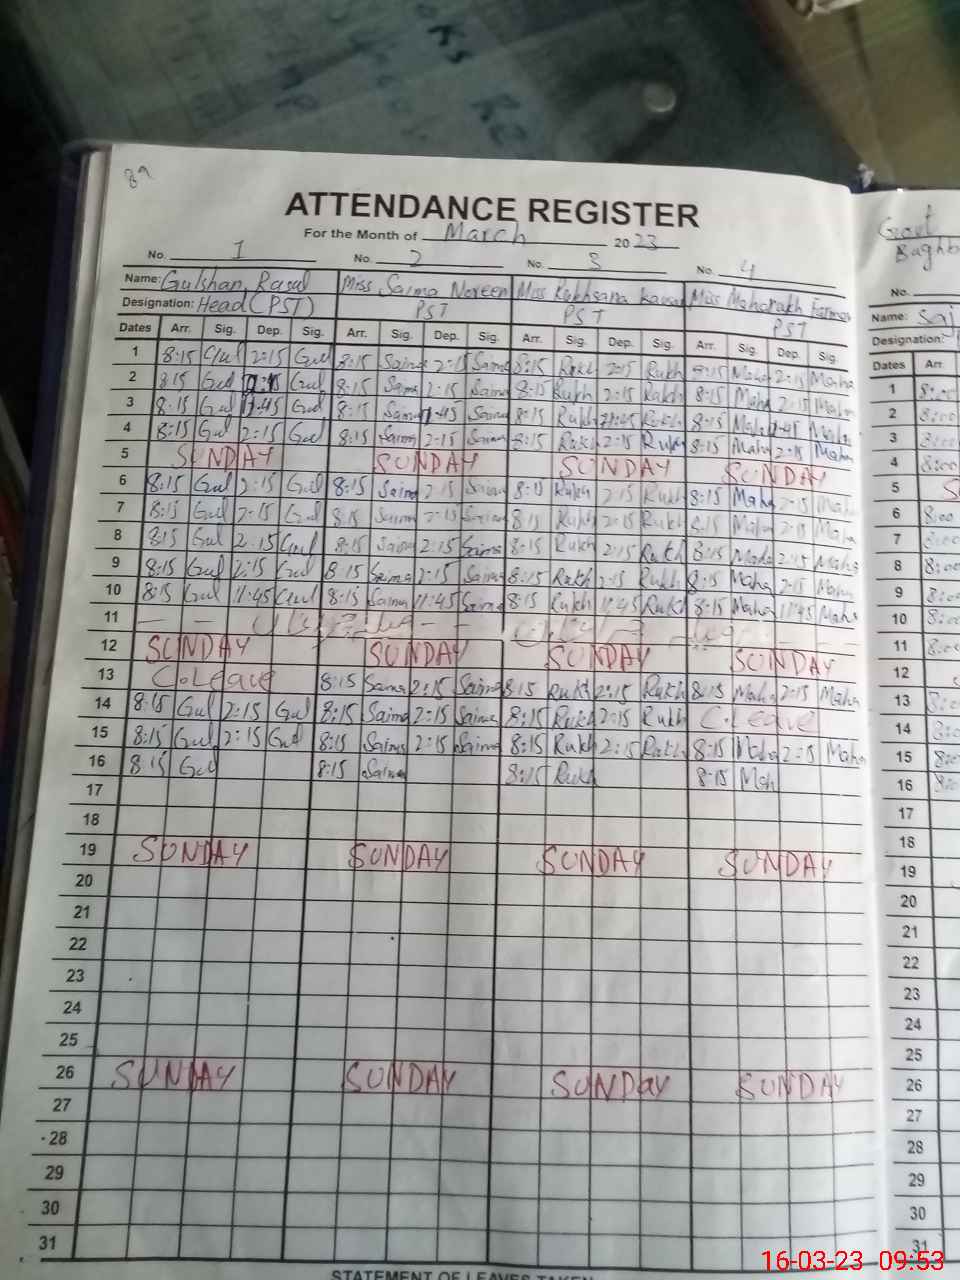 ATTENDANCE REGISTER
For the Month of March 2023
No. 1 No. 2 No. 3 No. 4
Name: Gulshan Rasul Miss Saima Noreen Miss Rukhsana Kausar Miss Maharukh
Designation: Head (PST) PST PST PST
Dates Arr. Sig. Dep. Sig. Arr. Sig. Dep. Sig. Arr. Sig. Dep. Sig. Arr. Sig. Dep. Sig.
1 8:15 Gul 2:15 Gul 8:15 Saima 2:15 Saima 8:15 Rukh 2:15 Rukh 8:15 Maha 2:15 Maha
2 8:15 Gul Gul 8:15 Saima 2:15 Saima 8:15 Rukh 2:15 Rukh 8:15 Maha 2:15 Maha
3 8:15 Gul Gul 8:15 Saima Saima 8:15 Rukh Rukh 8:15 Maha Maha
4 8:15 Gul 2:15 Gul 8:15 Saima 2:15 Saima 8:15 Rukh 2:15 Rukh 8:15 Maha 2:15 Maha
5 SUNDAY SUNDAY SUNDAY SUNDAY
6 8:15 Gul 2:15 Gul 8:15 Saima 2:15 Saima 8:15 Rukh 2:15 Rukh 8:15 Maha 2:15 Maha
7 8:15 Gul 2:15 Gul 8:15 Saima 2:15 Saima 8:15 Rukh 2:15 Rukh 8:15 Maha 2:15 Maha
8 8:15 Gul 2:15 Gul 8:15 Saima 2:15 Saima 8:15 Rukh 2:15 Rukh 8:15 Maha 2:15 Maha
9 8:15 Gul 2:15 Gul 8:15 Saima 2:15 Saima 8:15 Rukh 2:15 Rukh 8:15 Maha 2:15 Maha
10 8:15 Gul 11:45 Gul 8:15 Saima 11:45 Saima 8:15 Rukh 11:45 Rukh 8:15 Maha 11:45 Maha
11
12 SUNDAY SUNDAY SUNDAY SUNDAY
13 C.Leave 8:15 Saima 2:15 Saima 8:15 Rukh 2:15 Rukh 8:15 Maha 2:15 Maha
14 8:15 Gul 2:15 Gul 8:15 Saima 2:15 Saima 8:15 Rukh 2:15 Rukh C.Leave
15 8:15 Gul 2:15 Gul 8:15 Saima 2:15 Saima 8:15 Rukh 2:15 Rukh 8:15 Maha 2:15 Maha
16 8:15 Gul 8:15 Saima 8:15 Rukh 8:15 Mah
17
18
19 SUNDAY SUNDAY SUNDAY SUNDAY
20
21
22
23
24
25
26 SUNDAY SUNDAY SUNDAY SUNDAY
27
28
29
30
31
STATEMENT OF LEAVES TAKEN
Govt
No.
Name:
Designation:
Dates Arr
1 8:00
2 8:00
3 8:00
4 8:00
5
6 8:00
7 8:00
8 8:00
9 8:00
10 8:00
11 8:00
12
13 8:00
14 8:00
15 8:00
16 8:00
17
18
19
20
21
22
23
24
25
26
27
28
29
30
31
16-03-23 09:53